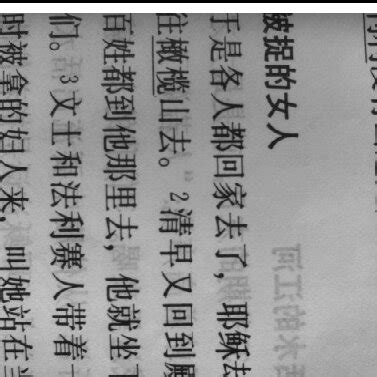 被捉的女人
于是各人都回家去了，耶稣
往橄榄山去。²清早又回到殿
百姓都到他那里去，他就坐下
们。³文士和法利赛人带着
时被拿的妇人来，叫她站在当